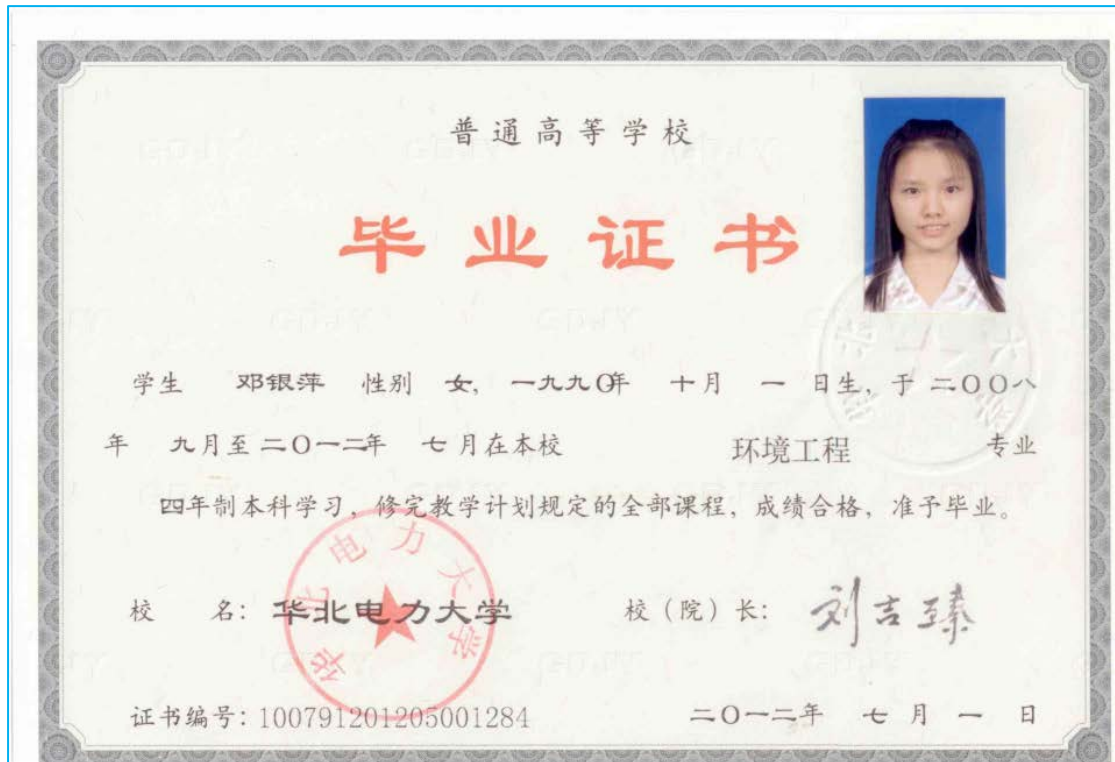 普通高等学校
毕业证书
学生 邓银萍 性别 女，一九九〇年 十月 一 日生，于 二〇〇八
年 九月至二〇一二年 七月在本校 环境工程 专业
四年制本科学习，修完教学计划规定的全部课程，成绩合格，准予毕业。
华北电力大学
校 名：华北电力大学 校（院）长：刘吉臻
证书编号：100791201205001284 二〇一二年 七月一日